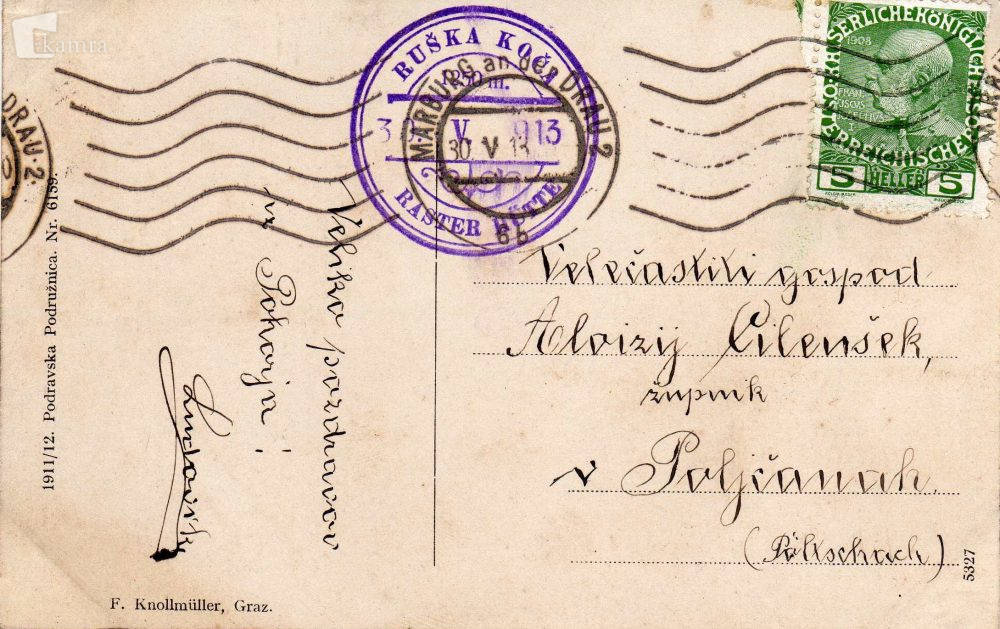 kamra
RUŠKA KOČA
1250 m.
V 913
RASTER HÜTTE
MARBURG an der DRAU 2
30 V 13
6b
DRAU·2
KAISERLICHE KÖNIGLICHE
ÖSTERREICHISCHE
1908
5 HELLER 5
Velika pozdravov
iz
Pohorja!
Ludovik
Velečastiti gospod
Aloizij Cilenšek,
župnik
v Poljčanah.
(Pöltschach)
1911/12. Podravska Podružnica. Nr. 6159.
F. Knollmüller, Graz.
5327